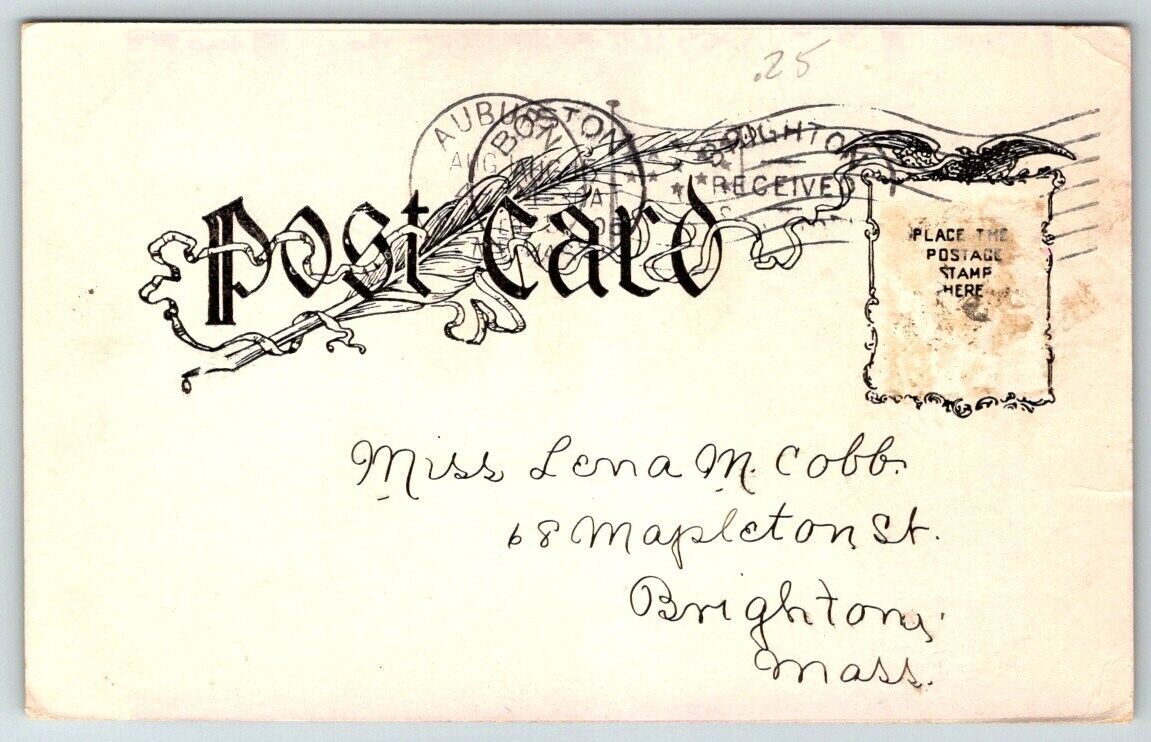 .25
AUBURN
AUG
BOSTON
AUG
BRIGHTON
RECEIVED
Post Card
PLACE THE
POSTAGE
STAMP
HERE
Miss Lena M. Cobb.
68 Mapleton St.
Brighton,
Mass.